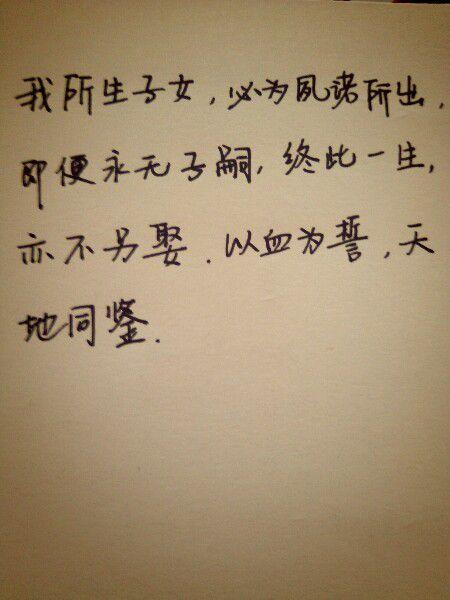 我所生子女，必为夙诺所出，
即便永无子嗣，终此一生，
亦不另娶．以血为誓，天
地同鉴．